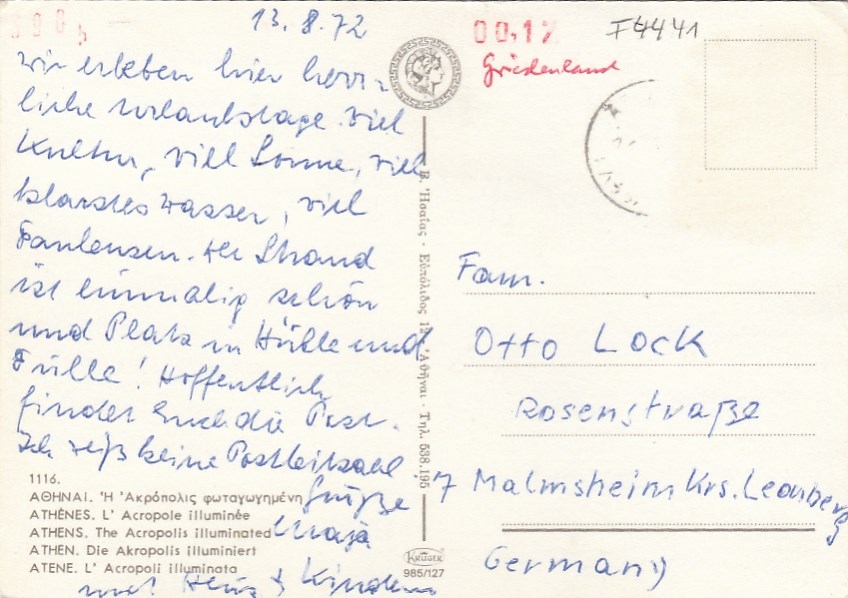 13.8.72
wir erleben hier herr-
liche Urlaubstage. Viel
Kultur, viel Sonne, viel
klarstes Wasser, viel
Faulenzen. Der Strand
ist einmalig schön
und Platz in Hülle und
Fülle! Hoffentlich
findet Euch die Post.
Ich weiß keine Postleitzahl
Grüße
und Heinz + Kinder
1116.
ΑΘΗΝΑΙ. Ἡ Ἀκρόπολις φωταγωγημένη
ATHÈNES. L' Acropole illuminée
ATHENS. The Acropolis illuminated
ATHEN. Die Akropolis illuminiert
ATENE. L' Acropoli illuminata
Β. Ἡσαΐας · Εὐπόλιδος 12 Ἀθῆναι · Τηλ. 538.195
KRÜGER
985/127
00,12
Griechenland
I4441
Fam.
Otto Lock
Rosenstraße
7 Malmsheim Krs. Leonberg
Germany